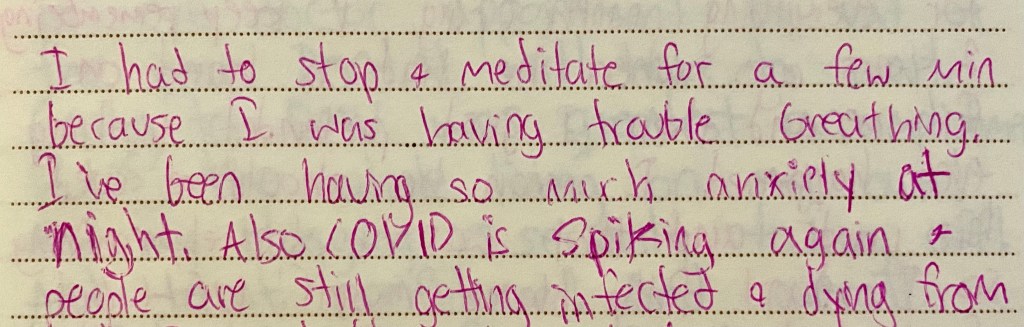 I had to stop & meditate for a few min
because I was having trouble breathing.
I've been having so much anxiety at
night. Also COVID is spiking again &
people are still getting infected & dying from